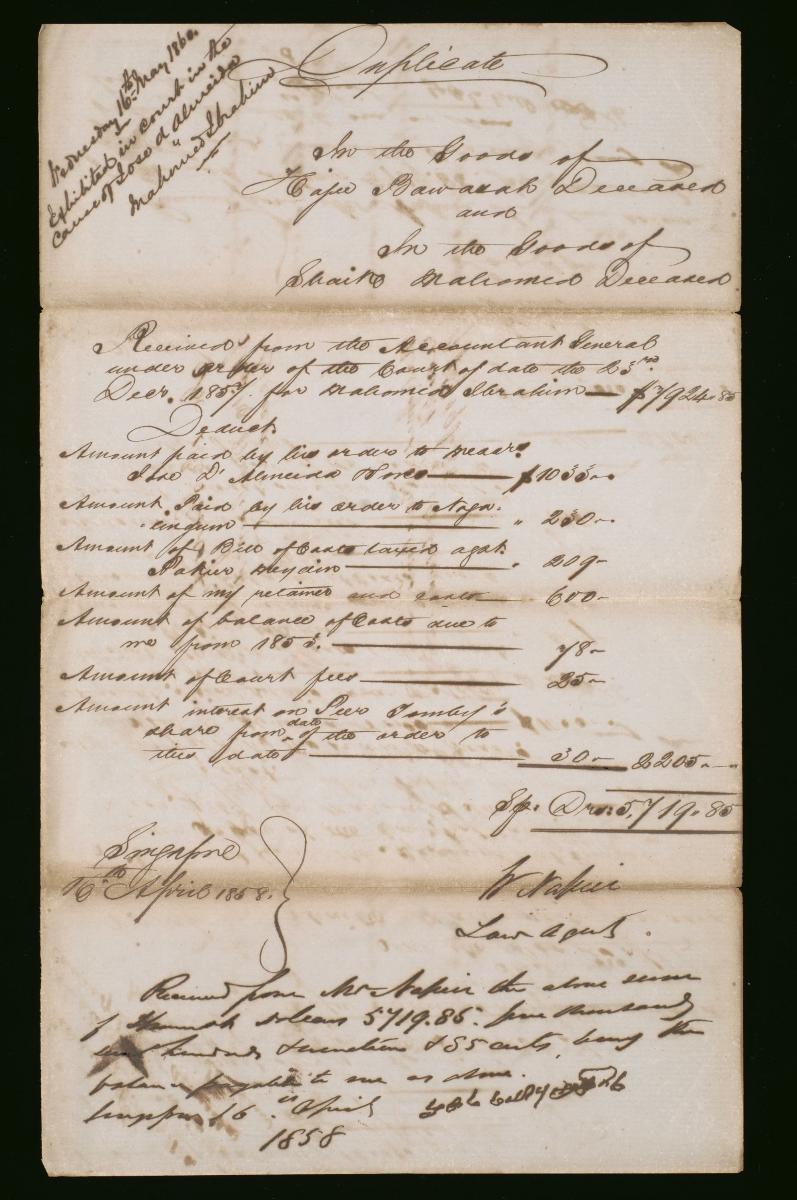 Wednesday 16th May 1860.
Exhibited in court in the
cause of Jose d'Almeida
"
Mahomed Ibrahim
Duplicate
In the Goods of
Hajee Bawasah Deceased
and
In the Goods of
Shaik Mahomed Deceased
Received from the Accountant General
under order of the Court of date the 23rd
Decr. 1857. for Mahomed Ibrahim — $7924.85
Deduct
Amount paid by his order to Messrs
Jose D'Almeida &Sons — $1033"-
Amount Paid by his order to Naga-
lingum — " 230"-
Amount of Bill of Costs taxed agst.
Pakier — " 209"-
Amount of my retainer and costs — 600"-
Amount of balance of Costs due to
me from 1855. — 78"-
Amount of Court fees — 25"-
Amount interest on Peer Tamby's
share from date of the order to
this date — 30"- 2205"-"
Sp: Drs: 5,719.85
Singapore
16th April 1858.
W Napier
Law Agent.
Received from Mr Napier the above sum
of Spanish dollars 5719.85. five thousand
seven hundred & nineteen & 85 cents, being the
balance payable to me as above.
Singapore 16th April
1858